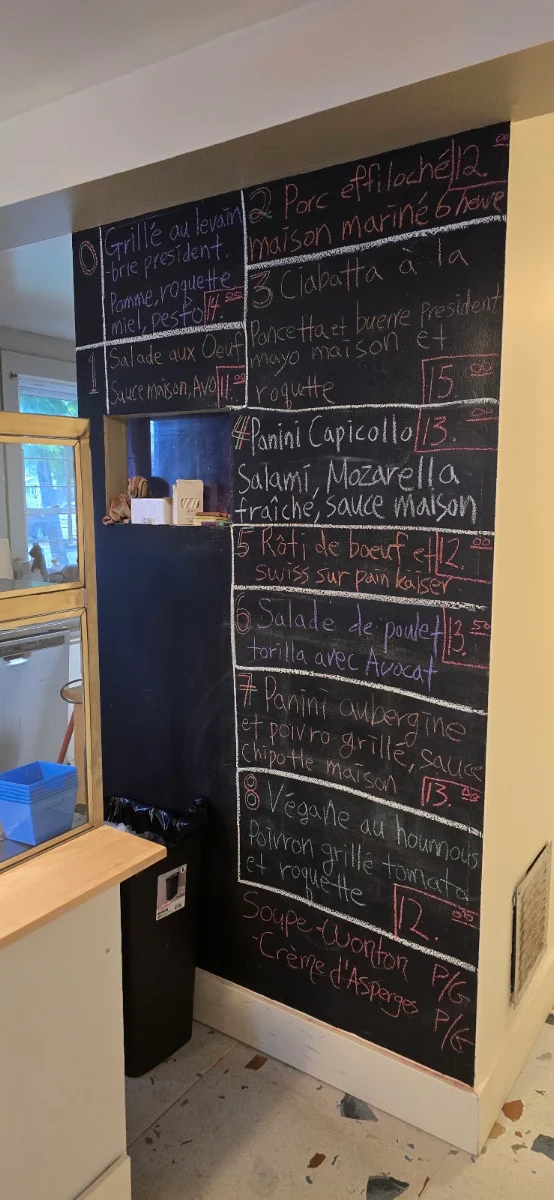 0 Grillé au levain
-brie president.
Pomme, roquette
miel, pesto 14.00
1 Salade aux Oeuf
Sauce maison, Avo 11.00
2 Porc effiloché 12.00
maison mariné 6 heure
3 Ciabatta à la
Pancetta et buerre President
mayo maison et
roquette 15.00
4 Panini Capicollo 13.00
Salami, Mozarella
fraîche, sauce maison
5 Rôti de boeuf et 12.00
swiss sur pain kaiser
6 Salade de poulet 13.50
torilla avec Avocat
7 Panini aubergine
et poivro grillé, sauce
chipotte maison 13.00
8 Végane au houmous
Poivron grillé tomato
et roquette 12.00
Soupe-Wonton P/G
-Crème d'Asperges P/G